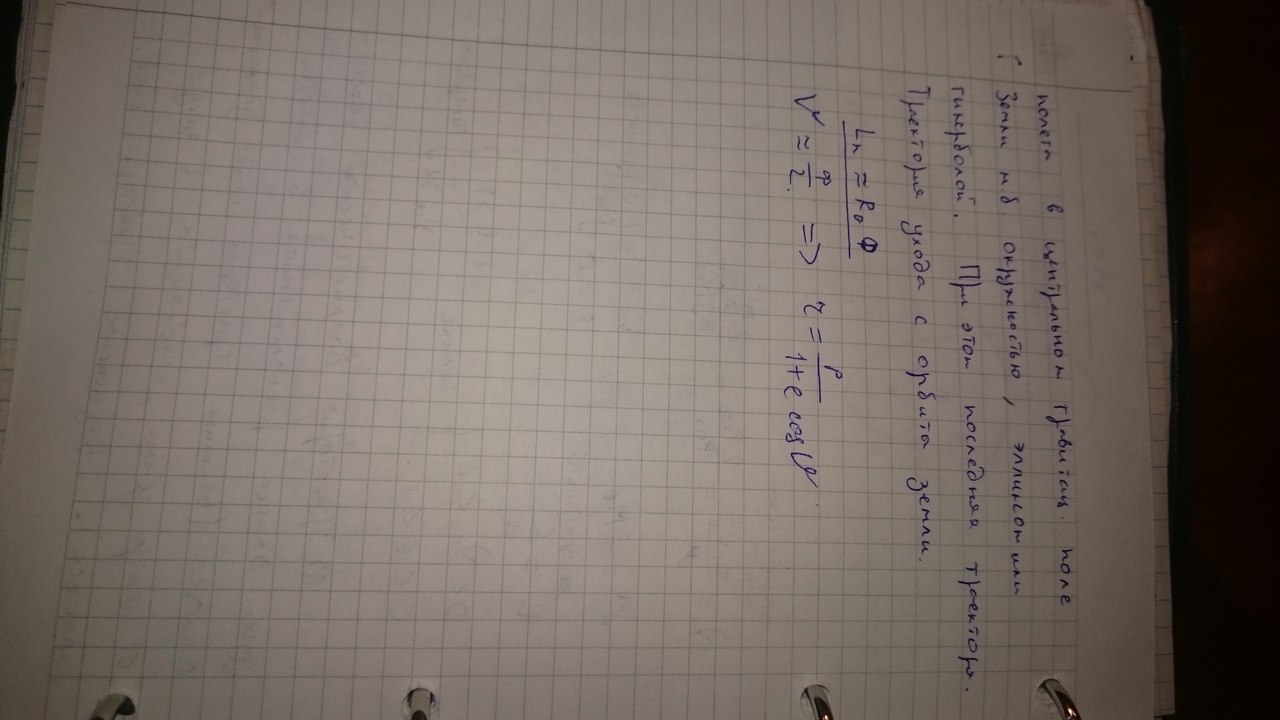 полета в центральном гравитац. поле
Земли м.б. окружностью, эллипсом или
гиперболой. При этом последняя траектор.
Траектория ухода с орбита земли.
Lп ≈ R₀ Ф
V ≈ Ф/2 => r = p/(1+e cos V)